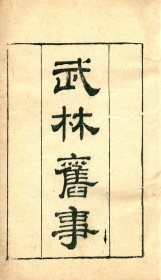 武林舊事